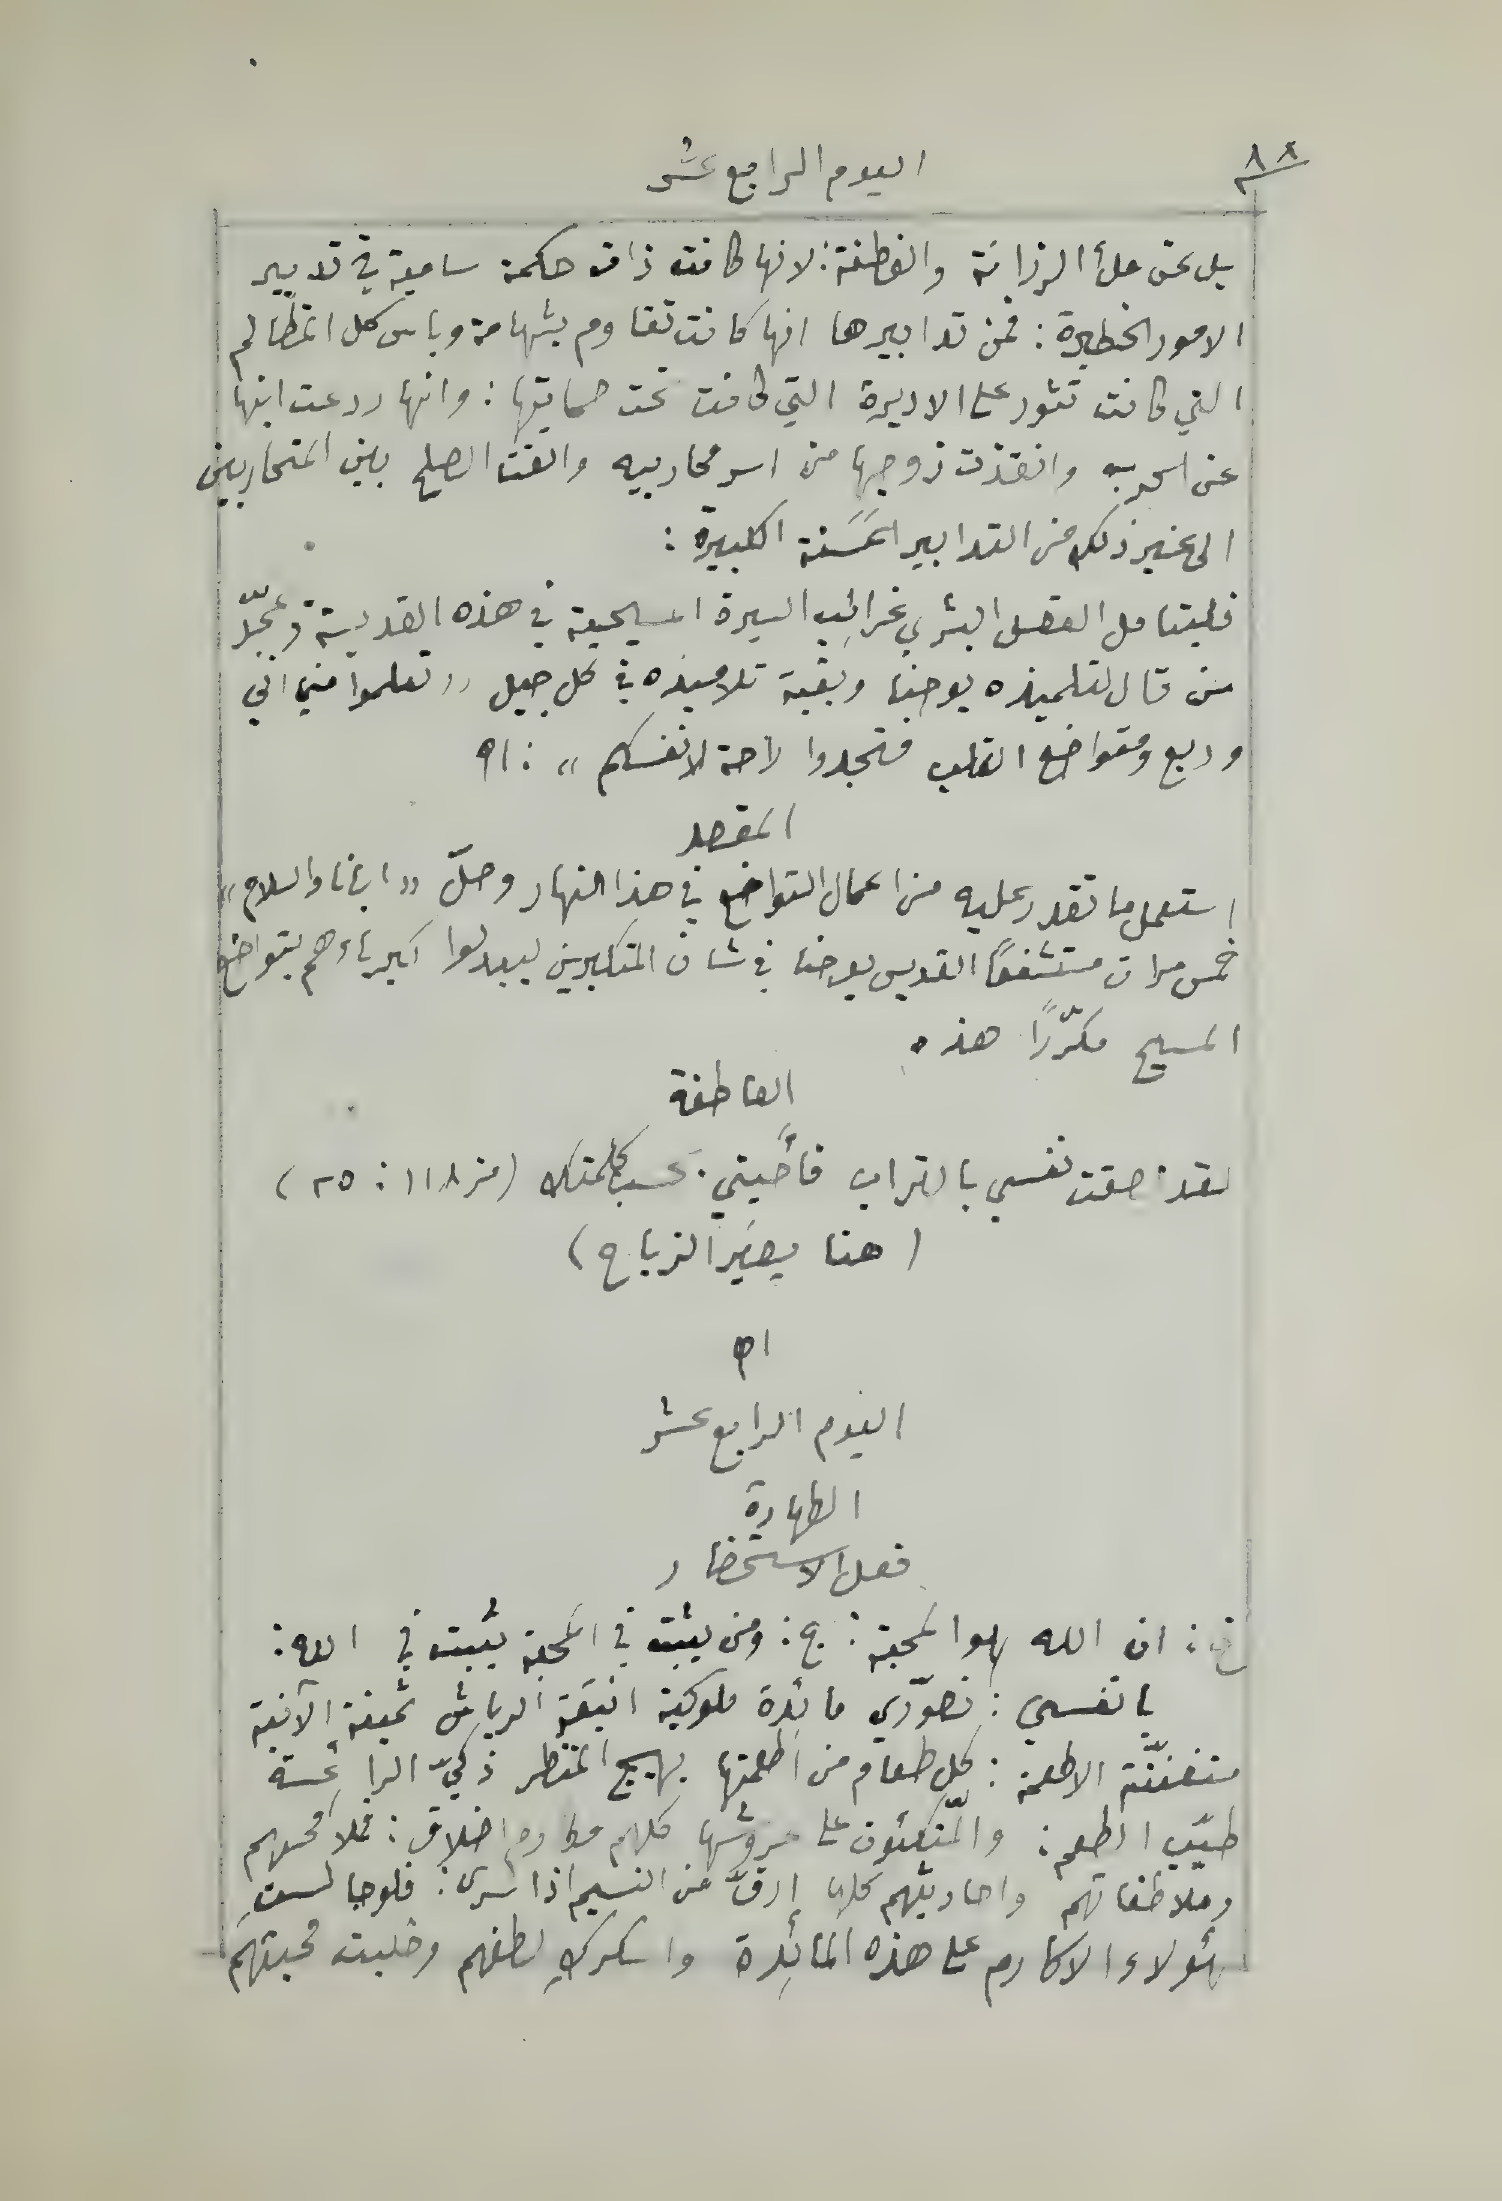 ٨٨
اليوم الرابع عشر
بل عن ملأ الرزانة والفطنة: لانها كانت ذات حكمة سامية في تدبير
الامور الخطيرة: فمن تدابيرها انها كانت تقاوم بشهامة وباس كل المظالم
التي كانت تثور على الاديرة التي كانت تحت حمايتها: وانها ردعت ابنها
عن الحرب وانقذت زوجها من اسر محاربيه والقت الصلح بين المتحاربين
الى غير ذلك من التدابير الحَسَنة الكبيرة:
فليتامل العقل البشري غرائب السيرة المسيحية في هذه القديسة ويمجّد
من قال لتلميذه يوحنا وبقية تلاميذه في كل جيل «تعلموا مني اني
وديع ومتواضع القلب فتجدوا راحة لانفسكم»: اه
المقصد
استعمل ما تقدر عليه من اعمال التواضع في هذا النهار وصلّ «ابانا والسلام»
خمس مرات مستشفعًا القديس يوحنا في شان المتكبرين ليبدلوا كبرياءهم بتواضع
المسيح مكرّرًا هذه
العاطفة
لقد لصقت نفسي بالتراب فأحيني حسب كلمتك (مز ١١٨: ٢٥)
(هنا يصير الزياح)
اه
اليوم الرابع عشر
الطهارة
فعل الاستحضار
خ: ان الله لهو المحبة: ج: ومن يثبت في المحبة يثبت في الله:
يا نفسي: تصوّري مائدة ملوكية انيقة الرياش ثمينة الآنية
متفننّة الاطعمة: كل طعام من اطعمتها بهيج المنظر ذكيّ الرائحة
طيّب الطعم: والمتّكئون على عروشها كلهم مكارم اخلاق: فملامحهم
وملاطفاتهم واحاديثهم كلها ارقّ من النسيم اذا سرى: فلو جالستِ
هٔولاء الاكارم على هذه المائدة واسكركِ لطفهم وخلبت محبتهم